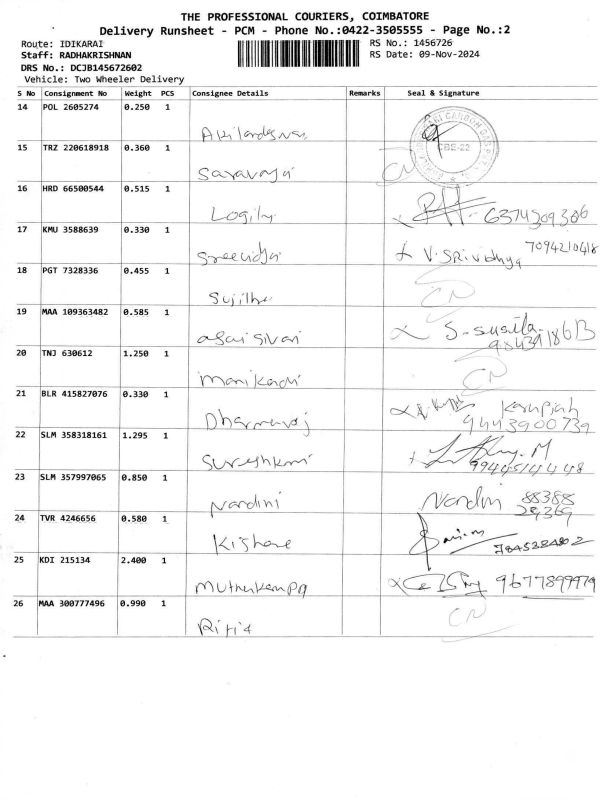 THE PROFESSIONAL COURIERS, COIMBATORE
Delivery Runsheet - PCM - Phone No.:0422-3505555 - Page No.:2
Route: IDIKARAI
RS No.: 1456726
Staff: RADHAKRISHNAN
RS Date: 09-Nov-2024
DRS No.: DCJB145672602
Vehicle: Two Wheeler Delivery
S No Consignment No Weight PCS Consignee Details Remarks Seal & Signature
14 POL 2605274 0.250 1
CBE-22
15 TRZ 220618918 0.360 1
CN
16 HRD 66500544 0.515 1
Logily 6374309306
17 KMU 3588639 0.330 1
Sreevidya V. SRividhya 7094210418
18 PGT 7328336 0.455 1
Sujitha CN
19 MAA 109363482 0.585 1
S. Susila
20 TNJ 630612 1.250 1
Manikadi CN
21 BLR 415827076 0.330 1
Dharmaraj Karupiah
9443900739
22 SLM 358318161 1.295 1
Sureshkmi M
9944514448
23 SLM 357997065 0.850 1
Nardini Nardini 88388
28369
24 TVR 4246656 0.580 1
Kishore
25 KDI 215134 2.400 1
Muthukampa 9677899979
26 MAA 300777496 0.990 1
CN